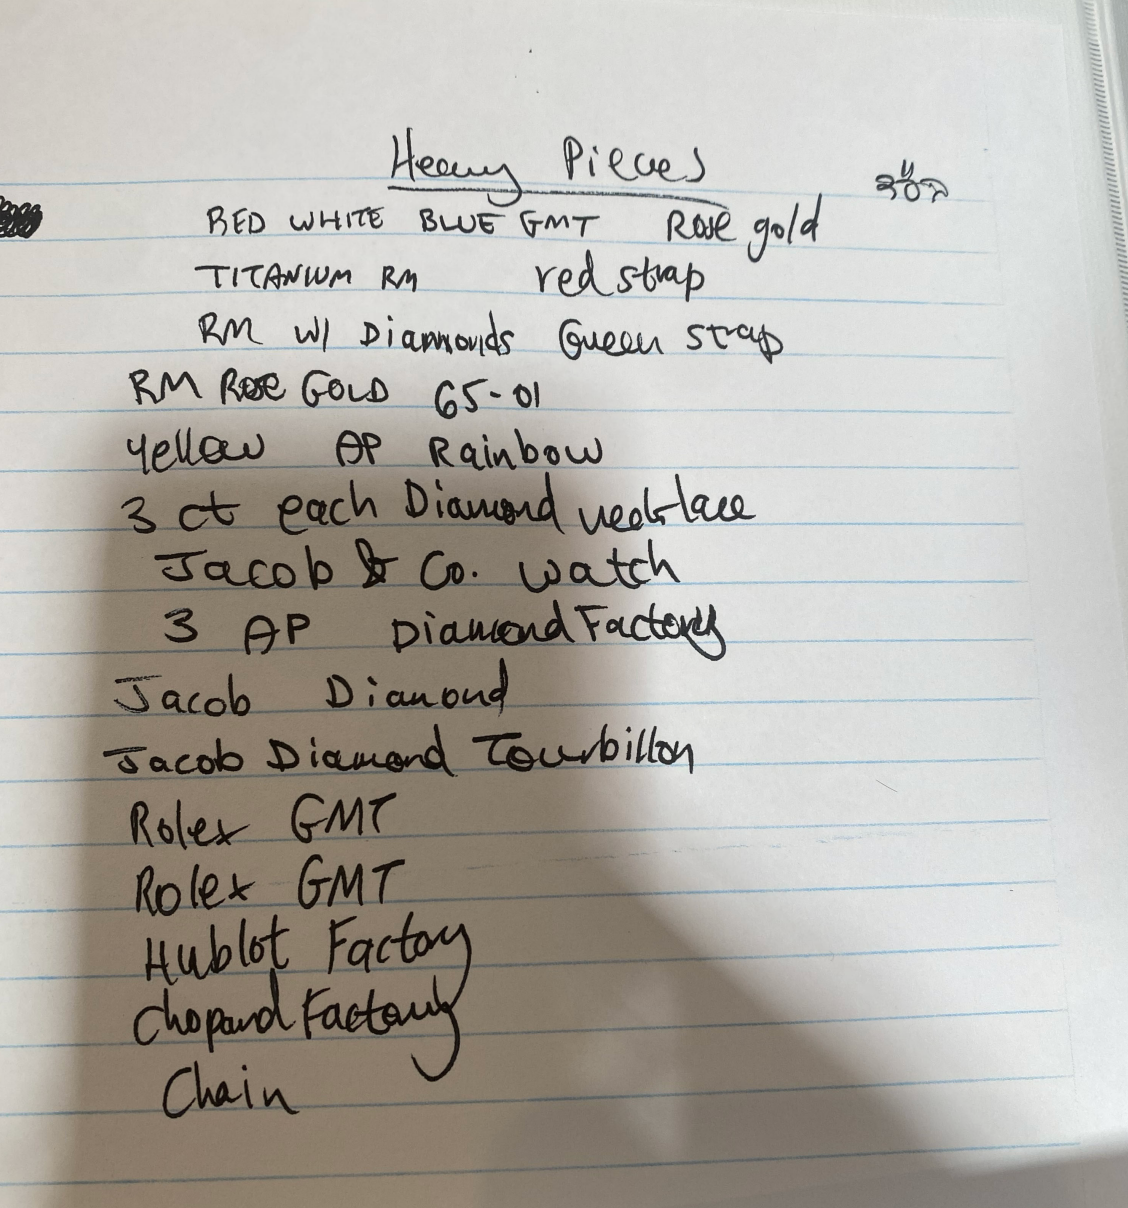 Heavy Pieces
RED WHITE BLUE GMT Rose gold
TITANIUM RM red strap
RM W/ Diamonds Green strap
RM ROSE GOLD 65-01
Yellow AP Rainbow
3 ct each Diamond necklace
Jacob & Co. watch
3 AP Diamond Factory
Jacob Diamond
Jacob Diamond Tourbillon
Rolex GMT
Rolex GMT
Hublot Factory
Chopard Factory
Chain